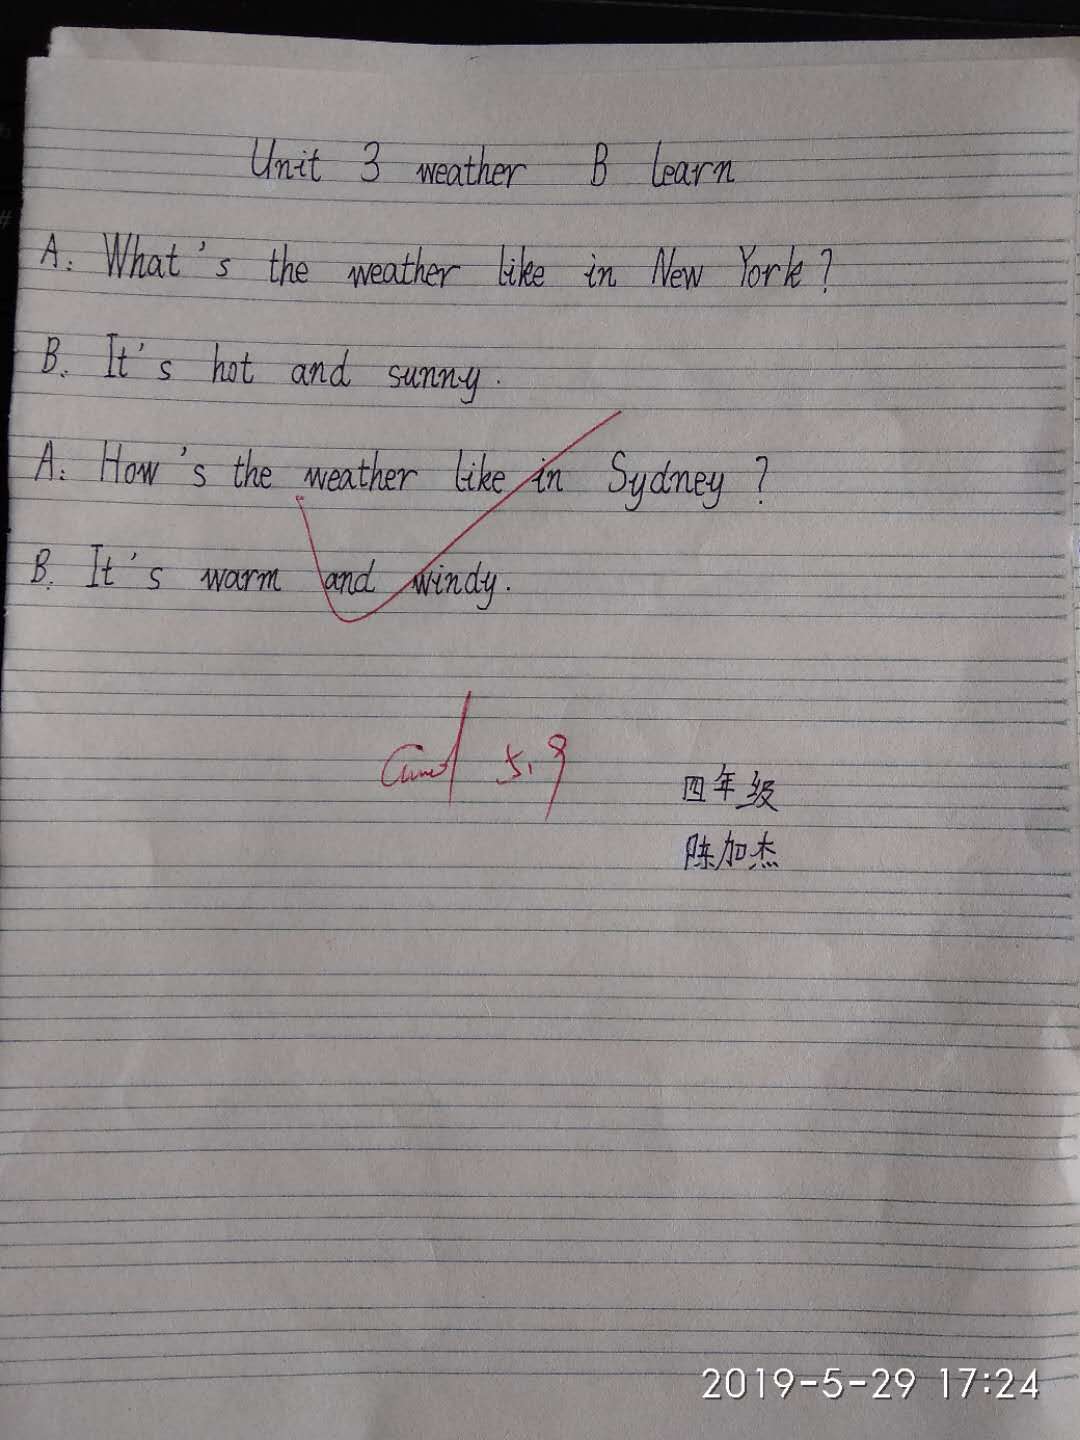 Unit 3 weather B learn
A: What's the weather like in New York?
B. It's hot and sunny.
A: How's the weather like in Sydney?
B. It's warm and windy.
5.9
四年级
陈加杰
2019-5-29 17:24